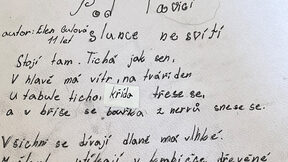 Pod lavicí
autor: Elen Čulová
11 let
slunce nesvítí
Stojí tam. Tichá jak sen,
V hlavě má vítr, na tváři den
U tabule ticho, křída třese se,
a v břiše se bouřka z nervů snese se.
Všichni se dívají dlaně má vlhké.
v dřevěné